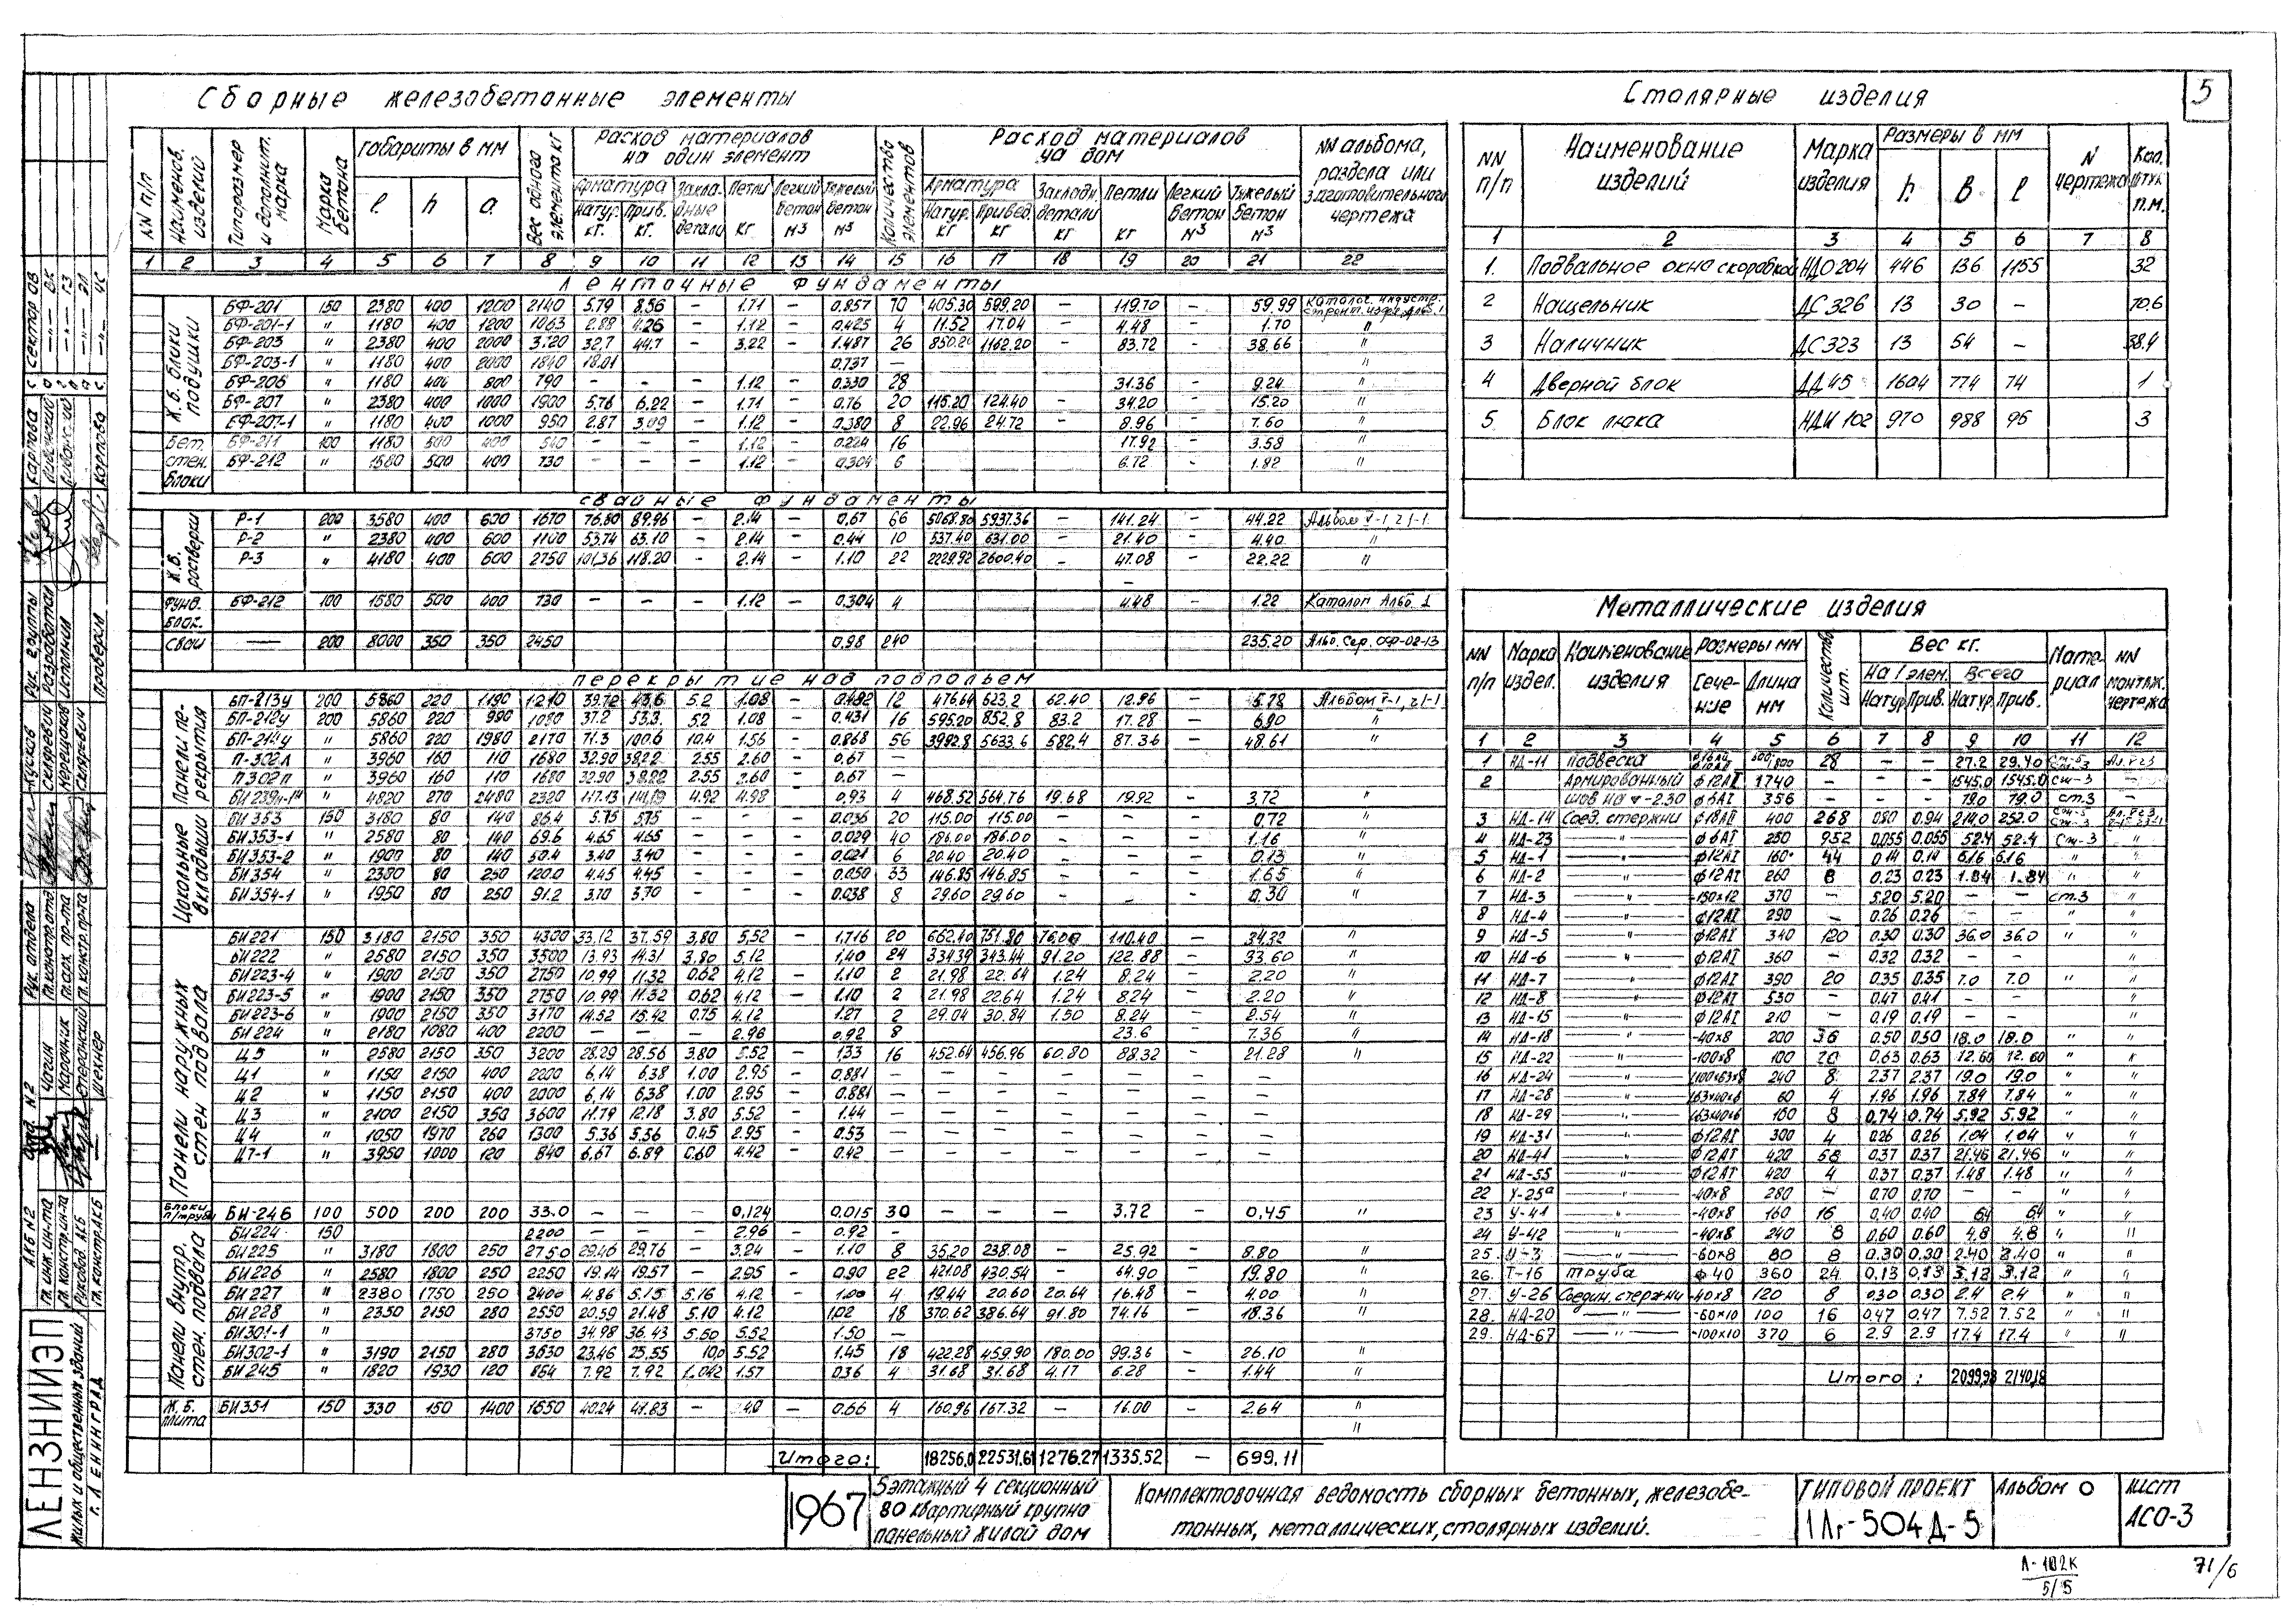 5
Сборные железобетонные элементы
NN п/п
Наименов. изделий
Типоразмер и дополнит. марка
Марка бетона
Габариты в мм
l h a
Вес одного элемента кг
Расход материалов на один элемент
Арматура
Натур. кг. Прив. кг.
Закладные детали
Петли кг
Легкий бетон м3
Тяжелый бетон м3
Количество элементов
Расход материалов на дом
Арматура
Натур. кг Привед. кг
Закладн. детали кг
Петли кг
Легкий бетон м3
Тяжелый бетон м3
NN альбома, раздела или заготовительного чертежа
1 2 3 4 5 6 7 8 9 10 11 12 13 14 15 16 17 18 19 20 21 22
Ленточные фундаменты
Ж.б. блоки подушки
БФ-201 150 2380 400 1200 2140 5.79 8.56 – 1.71 – 0.857 70 405.30 599.20 – 119.70 – 59.99
БФ-201-1 " 1180 400 1200 1063 2.88 4.26 – 1.12 – 0.425 4 11.52 17.04 – 4.48 – 1.70 "
БФ-203 " 2380 400 2000 3720 32.7 44.7 – 3.22 – 1.487 26 850.20 1162.20 – 83.72 – 38.66 "
БФ-203-1 " 1180 400 2000 1840 18.01 0.737 – "
БФ-206 " 1180 400 800 790 – – – 1.12 – 0.330 28 31.36 – 9.24 "
БФ-207 " 2380 400 1000 1900 5.76 6.22 – 1.71 – 0.76 20 115.20 124.40 – 34.20 – 15.20 "
БФ-207-1 " 1180 400 1000 950 2.87 3.09 – 1.12 – 0.380 8 22.96 24.72 – 8.96 – 7.60 "
Бет. стен. блоки
БФ-211 100 1180 500 400 540 – – – 1.12 – 0.224 16 17.92 – 3.58 "
БФ-212 " 1580 500 400 730 – – – 1.12 – 0.304 6 6.72 – 1.82 "
Свайные фундаменты
Ж.Б. ростверки
Р-1 200 3580 400 600 1670 76.80 89.96 – 2.14 – 0.67 66 5068.80 5937.36 – 141.24 – 44.22 Альбом V-1, 2/-1
Р-2 " 2380 400 600 1100 53.74 63.10 – 2.14 – 0.44 10 537.40 631.00 – 21.40 – 4.40 "
Р-3 " 4180 400 600 2750 101.36 118.20 – 2.14 – 1.10 22 2229.92 2600.40 – 47.08 – 22.22 "
Фунд. блок. БФ-212 100 1580 500 400 730 – – – 1.12 – 0.304 4 4.48 – 1.22 Каталог Альб. 1
Сваи — 200 8000 350 350 2450 0.98 240 235.20 Альб. Сер. ОФ-02-13
перекрытие над подпольем
Панели перекрытия
БП-213у 200 5860 220 1190 1210 39.72 43.6 5.2 1.08 – 0.482 12 476.64 523.2 62.40 12.96 – 5.78 Альбом V-1, 2/-1
БП-212у 200 5860 220 990 1080 37.2 53.3 5.2 1.08 – 0.431 16 595.20 852.8 83.2 17.28 – 6.90 "
БП-214у " 5860 220 1980 2170 71.3 100.6 10.4 1.56 – 0.868 56 3992.8 5633.6 582.4 87.36 – 48.61 "
П-302л " 3960 160 110 1680 32.90 38.22 2.55 2.60 – 0.67 –
П302п " 3960 160 110 1680 32.90 38.22 2.55 2.60 – 0.67 –
" 4820 270 2480 2320 117.13 141.19 4.92 4.98 – 0.93 4 468.52 564.76 19.68 19.92 – 3.72 "
Цокольные вкладыши
БИ353 150 3180 80 140 86.4 5.75 5.75 – – – 0.036 20 115.00 115.00 – – – 0.72 "
БИ353-1 " 2580 80 140 69.6 4.65 4.65 – – – 0.029 40 186.00 186.00 – – – 1.16 "
БИ353-2 " 1900 80 140 50.4 3.40 3.40 – – – 0.021 6 20.40 20.40 – – – 0.13 "
БИ354 " 2380 80 250 120.0 4.45 4.45 – – – 0.050 33 146.85 146.85 – – – 1.65 "
БИ354-1 " 1950 80 250 91.2 3.70 3.70 – – – 0.038 8 29.60 29.60 – – – 0.30 "
Панели наружных стен подвала
БИ221 150 3180 2150 350 4300 33.12 37.59 3.80 5.52 – 1.716 20 662.40 751.80 76.00 110.40 – 34.32 "
БИ222 " 2580 2150 350 3500 13.93 14.31 3.80 5.12 1.40 24 334.39 343.44 91.20 122.88 – 33.60 "
БИ223-4 " 1900 2150 350 2750 10.99 11.32 0.62 4.12 – 1.10 2 21.98 22.64 1.24 8.24 – 2.20 "
БИ223-5 " 1900 2150 350 2750 10.99 11.32 0.62 4.12 – 1.10 2 21.98 22.64 1.24 8.24 – 2.20 "
БИ223-6 " 1900 2150 350 3170 14.52 15.42 0.75 4.12 1.27 2 29.04 30.84 1.50 8.24 – 2.54 "
БИ224 " 2180 1080 400 2200 – – – 2.96 – 0.92 8 23.6 – 7.36 "
Ц5 " 2580 2150 350 3200 28.29 28.56 3.80 5.52 – 1.33 16 452.64 456.96 60.80 88.32 – 21.28 "
Ц1 " 1150 2150 400 2200 6.14 6.38 1.00 2.95 – 0.881 – – – – – –
Ц2 " 1150 2150 400 2000 6.14 6.38 1.00 2.95 – 0.881 – – – – – –
Ц3 " 2100 2150 350 3600 11.79 12.18 3.80 5.52 – 1.44 – – – – – –
Ц4 " 1050 1970 260 1300 5.36 5.56 0.45 2.95 – 0.53 – – – – – –
Ц7-1 " 3950 1000 120 840 6.67 6.89 0.60 4.42 – 0.42 – – – – – –
Блоки п/трубы БИ-246 100 500 200 200 33.0 – – – 0.124 0.015 30 – – – 3.72 – 0.45 "
Панели внутр. стен подвала
БИ224 150 2200 – – – 2.96 – 0.92 –
БИ225 " 3180 1800 250 2750 29.46 29.76 – 3.24 – 1.10 8 35.20 238.08 – 25.92 – 8.80 "
БИ226 " 2580 1800 250 2250 19.14 19.57 – 2.95 – 0.90 22 421.08 430.54 – 64.90 – 19.80 "
БИ227 " 2380 1750 250 2400 4.86 5.15 5.16 4.12 – 1.00 4 19.44 20.60 20.64 16.48 – 4.00 "
БИ228 " 2350 2150 280 2550 20.59 21.48 5.10 4.12 – 1.02 18 370.62 386.64 91.80 74.16 – 18.36 "
БИ301-1 " 3750 34.98 36.43 5.50 5.52 1.50 –
БИ302-1 " 3190 2150 280 3630 23.46 25.55 10.0 5.52 1.45 18 422.28 459.90 180.00 99.36 – 26.10 "
БИ245 " 1820 1930 120 864 7.92 7.92 1.042 1.57 0.36 4 31.68 31.68 4.17 6.28 – 1.44 "
Ж.Б. плита БИ351 150 330 150 1400 1650 40.24 41.83 – – 0.66 4 160.96 167.32 – 16.00 – 2.64 "
Итого: 18256.0 22531.61 1276.27 1335.52 – 699.11
Столярные изделия
NN п/п
Наименование изделий
Марка изделия
Размеры в мм
h B l
N чертежа
Кол. штук п.м.
1 2 3 4 5 6 7 8
1. Подвальное окно с коробкой НДО204 446 136 1155 32
2 Нащельник ДС326 13 30 – 70.6
3 Наличник ДС323 13 54 – 38.4
4 Дверной блок ДД45 1604 774 74 1
5 Блок люка НДИ102 970 988 95 3
Металлические изделия
NN п/п
Марка издел.
Наименование изделия
Размеры мм
Сечение Длина мм
Количество шт.
Вес кг.
На 1 элем. Всего
Натур. Прив. Натур. Прив.
Материал
NN монтаж. чертежа
1 2 3 4 5 6 7 8 9 10 11 12
1 НД-11 Подвеска 28 – – 27.2 29.40
2 Армированный ф12АI 1740 – – – 1545.0 1545.0 ст-3 –
шов на ▽-2.30 ф6АI 356 – – – 79.0 79.0 ст.3 "
3 НД-14 Соед. стержни ф18АII 400 268 0.80 0.94 214.0 252.0
4 НД-23 " ф6АI 250 952 0.055 0.055 52.4 52.4 Ст-3 "
5 НД-1 " ф12АI 160 44 0.14 0.14 6.16 6.16 " "
6 НД-2 " ф12АI 260 8 0.23 0.23 1.84 1.84 " "
7 НД-3 " -150х12 370 – 5.20 5.20 – – ст.3 "
8 НД-4 " ф12АI 290 – 0.26 0.26 – – " "
9 НД-5 " ф12АI 340 120 0.30 0.30 36.0 36.0 " "
10 НД-6 " ф12АI 360 – 0.32 0.32 – – "
11 НД-7 " ф12АI 390 20 0.35 0.35 7.0 7.0 " "
12 НД-8 " ф12АI 530 – 0.47 0.41 – – "
13 НД-15 " ф12АI 210 – 0.19 0.19 – – "
14 НД-18 " -40х8 200 36 0.50 0.50 18.0 18.0 " "
15 НД-22 " -100х8 100 20 0.63 0.63 12.60 12.60 " "
16 НД-24 " L100х63х8 240 8 2.37 2.37 19.0 19.0 " "
17 НД-28 " L63х40х6 60 4 1.96 1.96 7.84 7.84 " "
18 НД-29 " L63х40х6 160 8 0.74 0.74 5.92 5.92 " "
19 НД-31 " ф12АI 300 4 0.26 0.26 1.04 1.04 " "
20 НД-41 " ф12АI 420 58 0.37 0.37 21.46 21.46 " "
21 НД-55 " ф12АI 420 4 0.37 0.37 1.48 1.48 " "
22 У-25а -40х8 280 – 0.70 0.70 – – " "
23 У-41 " -40х8 160 16 0.40 0.40 6.4 6.4 " "
24 У-42 " -40х8 240 8 0.60 0.60 4.8 4.8 " "
25. У-3 " -60х8 80 8 0.30 0.30 2.40 2.40 " "
26. Т-16 труба ф40 360 24 0.13 0.13 3.12 3.12 " "
27. У-26 Соедин. стержни -40х8 120 8 0.30 0.30 2.4 2.4 " "
28. НД-20 " -60х10 100 16 0.47 0.47 7.52 7.52 " "
29. НД-67 " -100х10 370 6 2.9 2.9 17.4 17.4 " "
Итого: 2099.98 2140.18
1967
5 этажный 4 секционный
80 квартирный крупно
панельный жилой дом
Комплектовочная ведомость сборных бетонных, железобе-
тонных, металлических, столярных изделий.
ТИПОВОЙ ПРОЕКТ
1Лг-504Д-5
Альбом 0
лист
АСО-3
Л-102К
5/5
71/6
ЛЕНЗНИИЭП
жилых и общественных зданий
г. ЛЕНИНГРАД
АКБ N2
Гл. инж. ин-та
Гл. констр. ин-та
Руковод. АКБ
Гл. констр. АКБ
Чогин
Шехнер
Рук. отдела
Гл. констр. отд
Гл. арх. пр-та
Гл. констр. пр-та
Кусков
Скляревич
Мерещаков
Скляревич
Рук. группы
Разработал
Исполнил
Проверил
Карпова
Карпова
Сектор ОВ